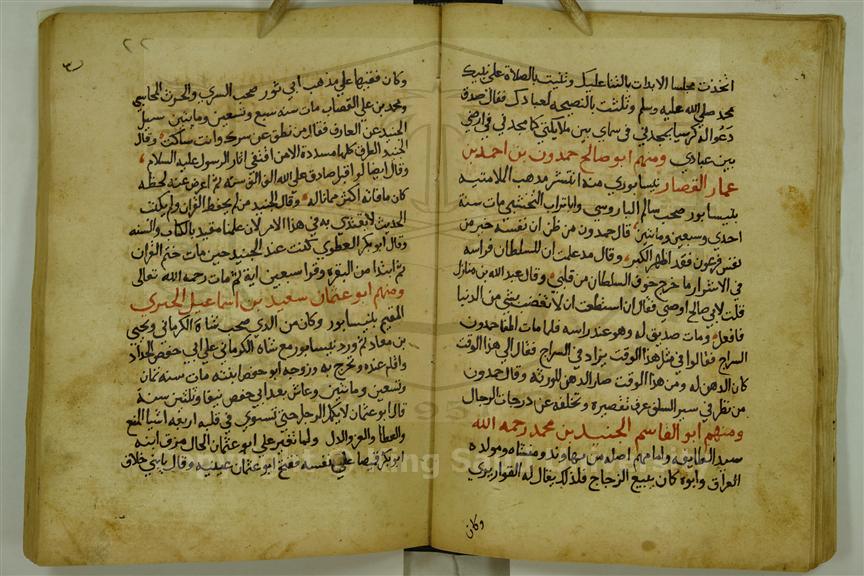 اتخذت مجلسا الابدات بالثنا عليك وثنيت بالصلاة على نبيك
محمد صلى الله عليه وسلم وثلثت بالنصيحة لعبادك فقال صدق
دعوا له كرسيا يمجدني في سماي بين ملايكتي كما مجدني في ارضي
بين عبادي ومنهم ابو صالح حمدون بن احمد بن
عمار القصار نيسابوري منه انتشر مذهب الملامتيه
بنيسابور صحب سالم الباروسي وابا تراب النخشبي مات سنة
احدى وسبعين وماتين قال حمدون من ظن ان نفسه خير من
نفس فرعون فقد اظهر الكبر وقال مذ علمت ان للسلطان فراسه
في الاشرار ما خرج خوف السلطان من قلبي وقال عبد الله بن منازل
قلت لابي صالح اوصني فقال ان استطعت ان لا تغضب لشي من الدنيا
فافعل ومات صديق له وهو عند راسه فلما مات اطفا حمدون
السراج فقالوا في مثل هذا الوقت يزاد في السراج فقال الي هذا الوقت
كان الدهن له ومن هذا الوقت صار الدهن للورثه وقال حمدون
من نظر في سير السلف عرف تقصيره وتخلفه عن درجات الرجال
ومنهم ابو القاسم الجنيد بن محمد رحمه الله
سيد الطايفه وامامهم اصله من نهاوند ومنشاه ومولده
العراق وابوه كان يبيع الزجاج فلذلك يقال له القواريري
وكان
٢٢
وكان فقيها علي مذهب ابي ثور صحب السري والحرث المحاسبي
ومحمد بن علي القصاب مات سنة سبع وتسعين وماتين سيل
الجنيد عن العارف فقال من نطق عن سرك وانت ساكت وقال
الجنيد الطرق كلها مسدودة الا من اقتفى اثار الرسول عليه السلام
وقال ايضا لو اقبل صادق على الله الف الف سنة ثم اعرض عنه لحظه
كان ما فاته اكثر مما ناله وقال الجنيد من لم يحفظ القران ولم يكتب
الحديث لا يقتدي به في هذا الامر لان علمنا مقيد بالكتاب والسنه
وقال ابو بكر العطوي كنت عند الجنيد حين مات ختم القران
ثم ابتدا من البقره وقرا سبعين اية ثم مات رحمه الله تعالى
ومنهم ابو عثمان سعيد بن اسماعيل الحيري
المقيم بنيسابور وكان من الري صحب شاه الكرماني ويحيى
بن معاد ثم ورد نيسابور مع شاه الكرماني علي ابي حفص الحداد
واقام عنده وتخرج به وزوجه ابو حفص ابنته مات سنه ثمان
وتسعين وماتين وعاش بعد ابي حفص نيفا وثلثين سنة
قال ابو عثمان لا يكمل الرجل حتى تستوي في قلبه اربعه اشيا المنع
والعطا والعز والذل ولما تغير علي ابو عثمان الحال مزق ابنه
ابو بكر قميصا علي نفسه ففتح ابو عثمان عينيه وقال يا بني خلاف